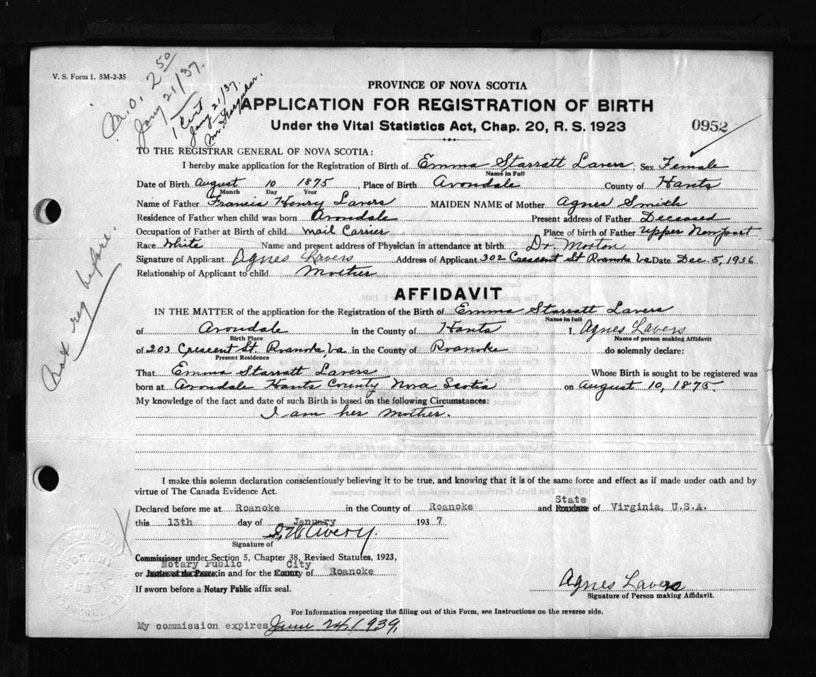 V. S. Form 1. 5M-2-35
M.O. 2.50
Jany 21/37.
1 Cert
Jany 21/37.
PROVINCE OF NOVA SCOTIA
APPLICATION FOR REGISTRATION OF BIRTH
Under the Vital Statistics Act, Chap. 20, R. S. 1923
0952
TO THE REGISTRAR GENERAL OF NOVA SCOTIA:
I hereby make application for the Registration of Birth of Emma Starratt Lavers Sex Female
Name in Full
Date of Birth August 10 1875, Place of Birth Avondale County of Hants
Month Day Year
Name of Father Francis Henry Lavers MAIDEN NAME of Mother Agnes Smith
Residence of Father when child was born Avondale Present address of Father Deceased
Occupation of Father at Birth of child Mail Carrier Place of birth of Father Upper Newport
Race White Name and present address of Physician in attendance at birth Dr. Morton
Signature of Applicant Agnes Lavers Address of Applicant 302 Crescent St Roanoke Va Date Dec. 5, 1936
Relationship of Applicant to child Mother
Not reg before.
AFFIDAVIT
IN THE MATTER of the application for the Registration of the Birth of Emma Starratt Lavers
Name in full
of Avondale in the County of Hants I, Agnes Lavers
Birth Place Name of person making Affidavit
of 203 Crescent St. Roanoke, Va in the County of Roanoke do solemnly declare:
Present Residence
That Emma Starratt Lavers Whose Birth is sought to be registered was
born at Avondale Hants County Nova Scotia on August 10, 1875.
My knowledge of the fact and date of such Birth is based on the following Circumstances:
I am her mother.
I make this solemn declaration conscientiously believing it to be true, and knowing that it is of the same force and effect as if made under oath and by
virtue of The Canada Evidence Act.
State
Declared before me at Roanoke in the County of Roanoke and Province of Virginia, U.S.A.
this 13th day of January 1937
Signature of
Commissioner under Section 5, Chapter 38, Revised Statutes, 1923,
Notary Public City
or Justice of the Peace in and for the County of Roanoke
If sworn before a Notary Public affix seal.
Agnes Lavers
Signature of Person making Affidavit.
For Information respecting the filling out of this Form, see Instructions on the reverse side.
My commission expires June 24, 1939,